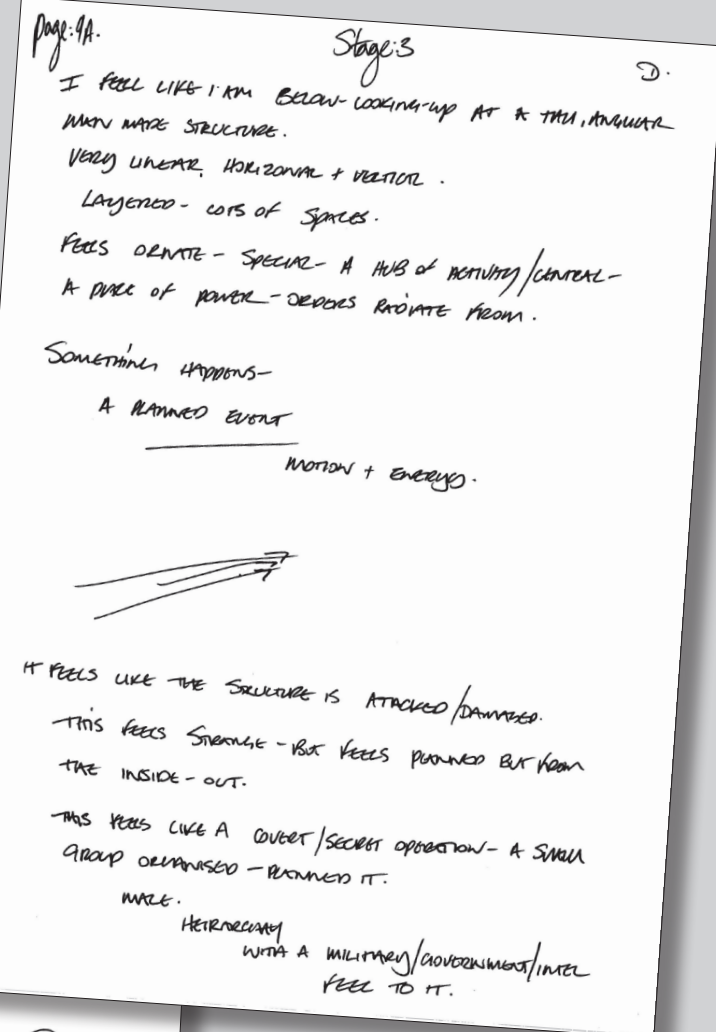 Page:9A.
Stage:3
D.
I FEEL LIKE I AM BELOW-LOOKING-UP AT A TALL, ANGULAR
MAN MADE STRUCTURE.
VERY LINEAR, HORIZONAL + VERTICL.
LAYERED - LOTS OF SPACES.
FEELS ORNATE - SPECIAL - A HUB of ACTIVITY/CENTRAL -
A PLACE OF POWER - ORDERS RADIATE FROM.
SOMETHING HAPPENS-
A PLANNED EVENT
MOTION + ENERGYS.
IT FEELS LIKE THE STRUCTURE IS ATTACKED/DAMAGED.
THIS FEELS STRANGE - BUT FEELS PLANNED BUT FROM
THE INSIDE - OUT.
THIS FEELS LIKE A COVERT/SECRET OPERATION - A SMALL
GROUP ORGANISED - PLANNED IT.
MALE.
HEIRARCHY
WITH A MILITARY/GOVERNMENT/INTEL
FEEL TO IT.